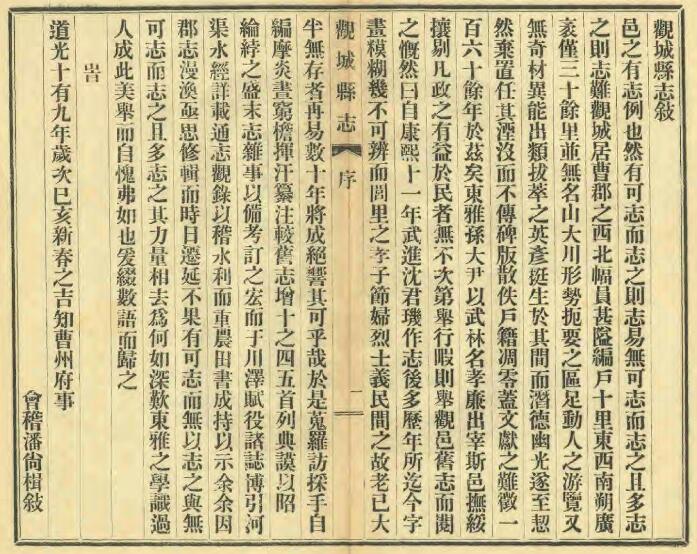 觀城縣志敘
邑之有志例也然有可志而志之則志易無可志而志之且多志
之則志難觀城居曹郡之西北幅員甚隘編戶十里東西南朔廣
袤僅三十餘里並無名山大川形勢扼要之區足動人之游覽又
無奇材異能出類拔萃之英彥挺生於其間而潛德幽光遂至恝
然棄置任其湮沒而不傳碑版散佚戶籍凋零蓋文獻之難徵一
百六十餘年於茲矣東雅孫大尹以武林名孝廉出宰斯邑撫綏
攘剔凡政之有益於民者無不次第舉行暇則舉觀邑舊志而閱
之慨然曰自康熙十一年武進沈君璣作志後多歷年所迄今字
畫糢糊幾不可辨而閭里之孝子節婦烈士義民間之故老已大
觀城縣志
序
二
半無存者再易數十年將成絕響其可乎哉於是蒐羅訪採手自
編摩炎晝窮檐揮汗纂注較舊志增十之四五首列典謨以昭
綸綍之盛末志雜事以備考訂之宏而于川澤賦役諸誌博引河
渠水經詳載通志觀錄以稽水利而重農田書成持以示余余因
郡志漫渙亟思修輯而時日遷延不果有可志而無以志之與無
可志而志之且多志之其力量相去為何如深歎東雅之學識過
人成此美舉而自愧弗如也爰綴數語而歸之
旹
道光十有九年歲次己亥新春之吉知曹州府事
會稽潘尙楫敘